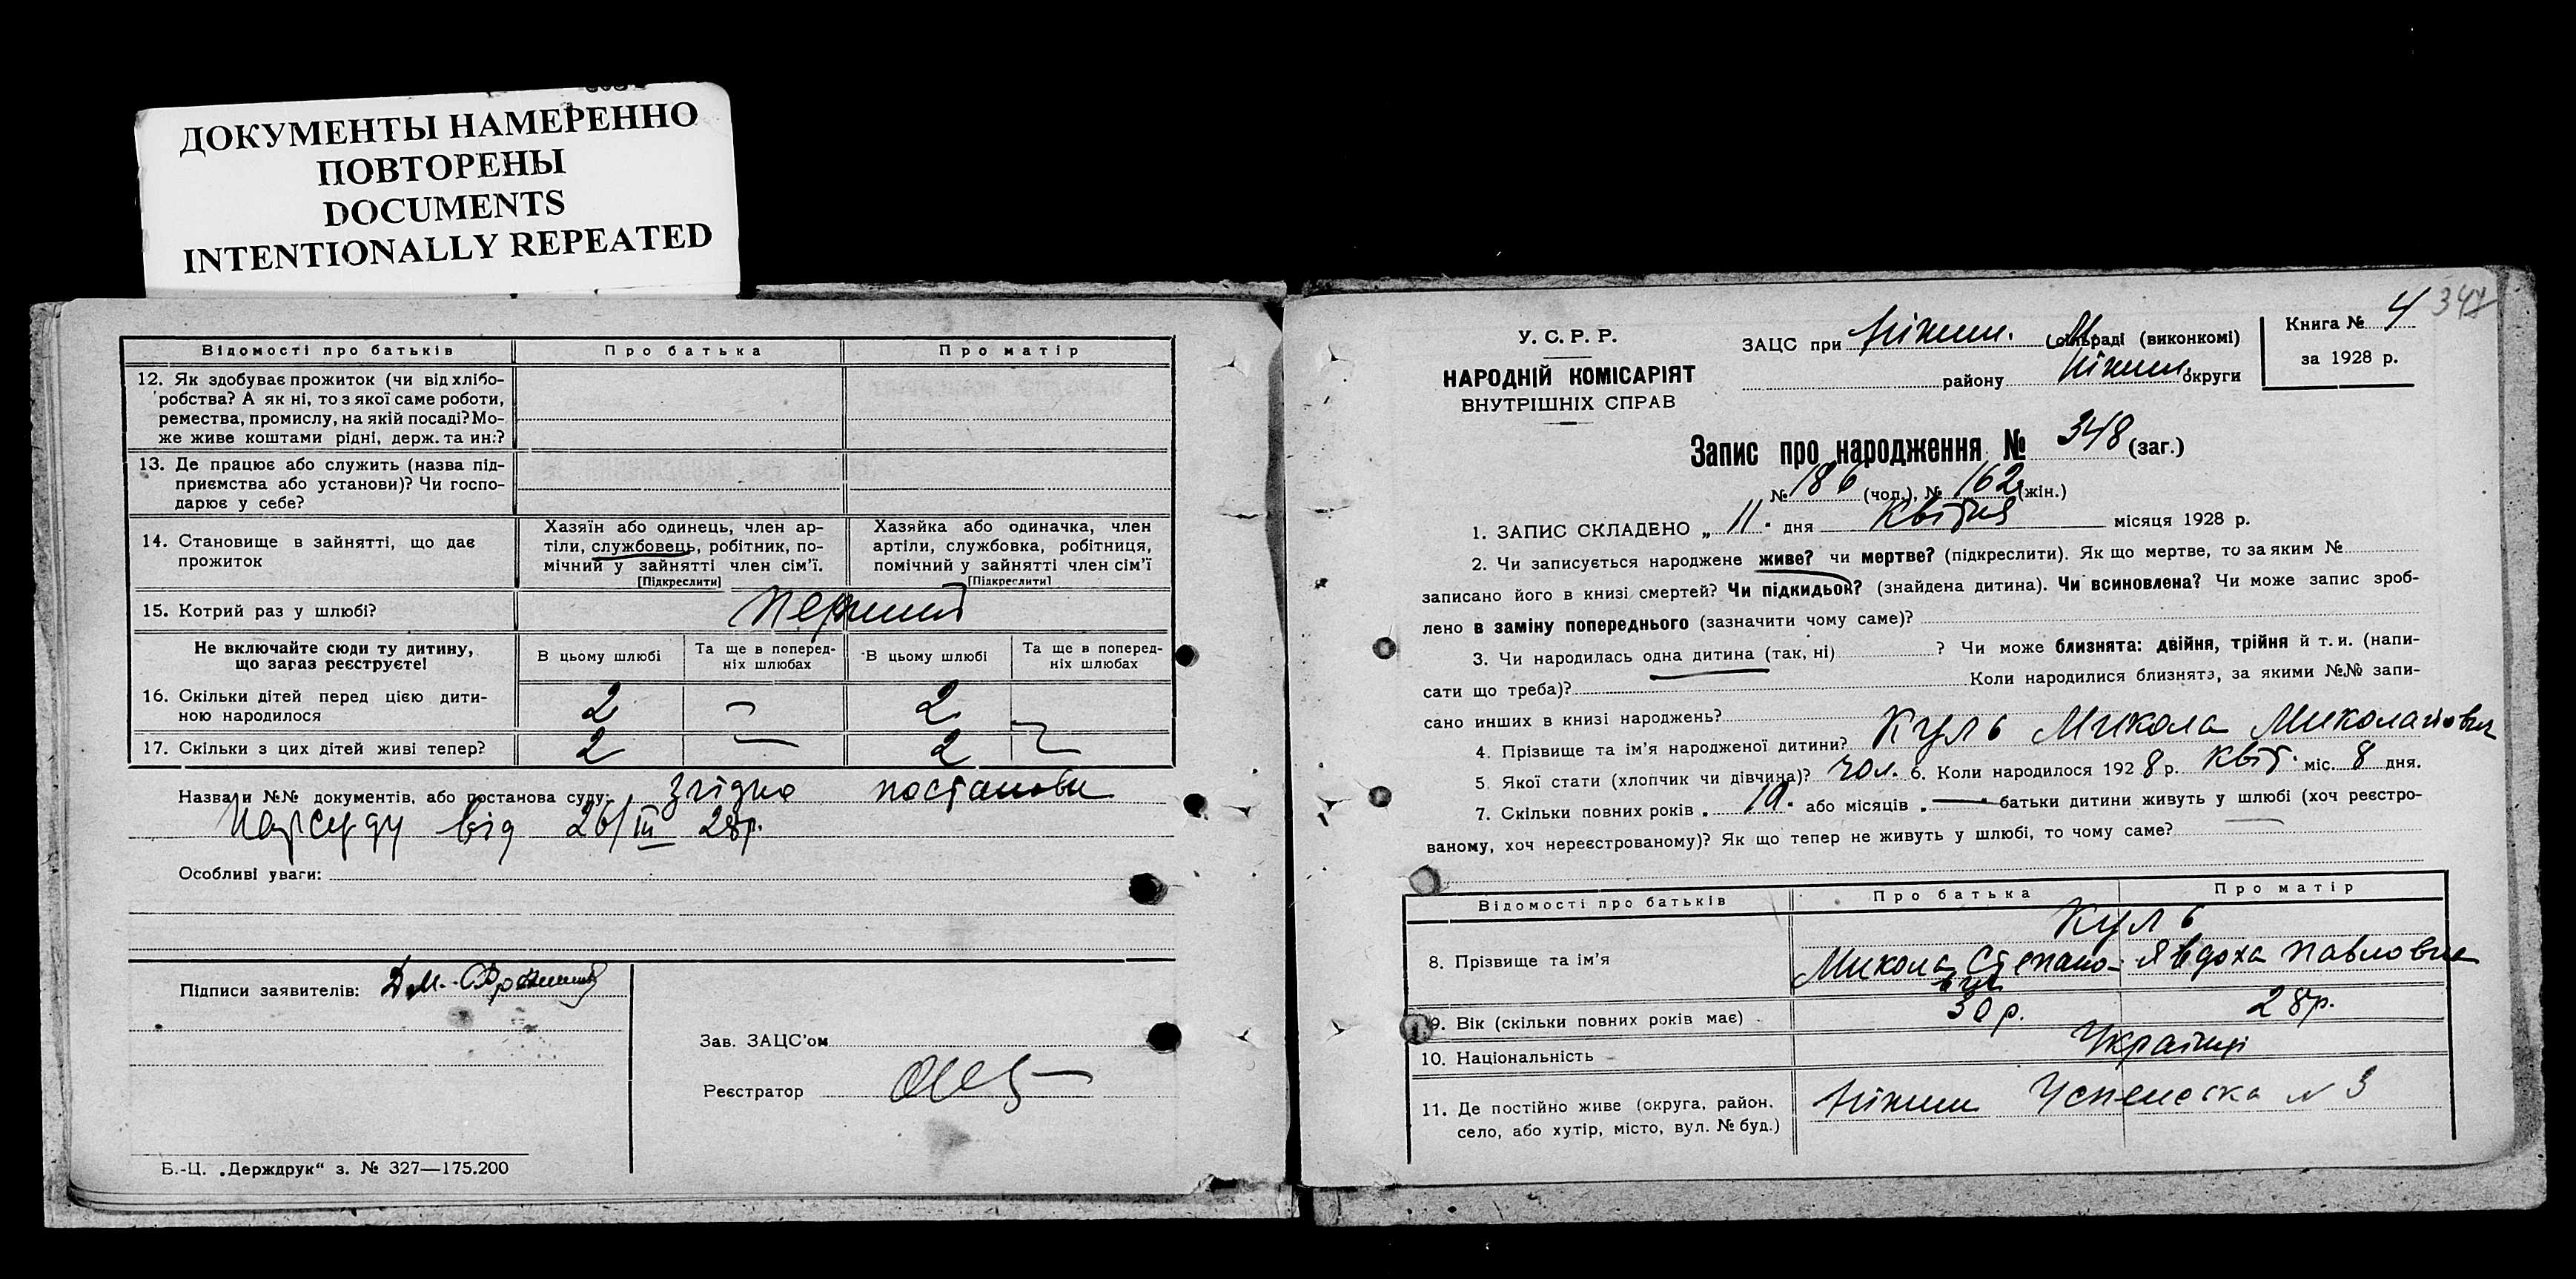 ДОКУМЕНТЫ НАМЕРЕННО
ПОВТОРЕНЫ
DOCUMENTS
INTENTIONALLY REPEATED
Відомості про батьків Про батька Про матір
12. Як здобуває прожиток (чи від хлібо-
робства? А як ні, то з якої саме роботи,
ремества, промислу, на якій посаді? Мо-
же живе коштами рідні, держ. та ин.?
13. Де працює або служить (назва під-
приємства або установи)? Чи госпо-
дарює у себе?
14. Становище в зайнятті, що дає
прожиток
Хазяїн або одинець, член ар-
тіли, службовець, робітник, по-
мічний у зайнятті член сім'ї.
[Підкреслити]
Хазяйка або одиначка, член
артіли, службовка, робітниця,
помічний у зайнятті член сім'ї
[Підкреслити]
15. Котрий раз у шлюбі? Перший
Не включайте сюди ту дитину,
що зараз реєструєте!
В цьому шлюбі
Та ще в поперед-
ніх шлюбах
В цьому шлюбі
Та ще в поперед-
ніх шлюбах
16. Скільки дітей перед цією дити-
ною народилося 2 — 2
17. Скільки з цих дітей живі тепер? 2 — 2
Назва и №№ документів, або постанова суду: Згідно постанови
Нарсуду від 26/III 28р.
Особливі уваги:
Підписи заявителів:
Зав. ЗАЦС'ом
Реєстратор
Б.-Ц. „Держдрук“ з. № 327—175.200
347
У. С. Р. Р.
НАРОДНІЙ КОМІСАРІЯТ
ВНУТРІШНІХ СПРАВ
ЗАЦС при Ніжин. сільраді (виконкомі)
району Ніжин. округи
Книга № 4
за 1928 р.
Запис про народження № 348 (заг.)
№ 186 (чол.), № 162 (жін.)
1. ЗАПИС СКЛАДЕНО „ 11 " дня Квітня місяця 1928 р.
2. Чи записується народжене живе? чи мертве? (підкреслити). Як що мертве, то за яким №
записано його в книзі смертей? Чи підкидьок? (знайдена дитина). Чи всиновлена? Чи може запис зроб-
лено в заміну попереднього (зазначити чому саме)?
3. Чи народилась одна дитина (так, ні) ? Чи може близнята: двійня, трійня й т. и. (напи-
сати що треба)? Коли народилися близнята, за якими №№ запи-
сано инших в книзі народжень?
4. Прізвище та ім'я народженої дитини? Куль Микола Миколайович
5. Якої стати (хлопчик чи дівчина)? чол. 6. Коли народилося 1928 р. Квіт. міс. 8 дня.
7. Скільки повних років „ 10 " або місяців „ — " батьки дитини живуть у шлюбі (хоч реєстро-
ваному, хоч нереєстрованому)? Як що тепер не живуть у шлюбі, то чому саме?
Відомості про батьків Про батька Про матір
Куль
8. Прізвище та ім'я Микола Степано- Явдоха Павловна
вич
9. Вік (скільки повних років має) 30 р. 28р.
10. Національність Українці
11. Де постійно живе (округа, район,
село, або хутір, місто, вул. № буд.)
Ніжин Успенська № 3